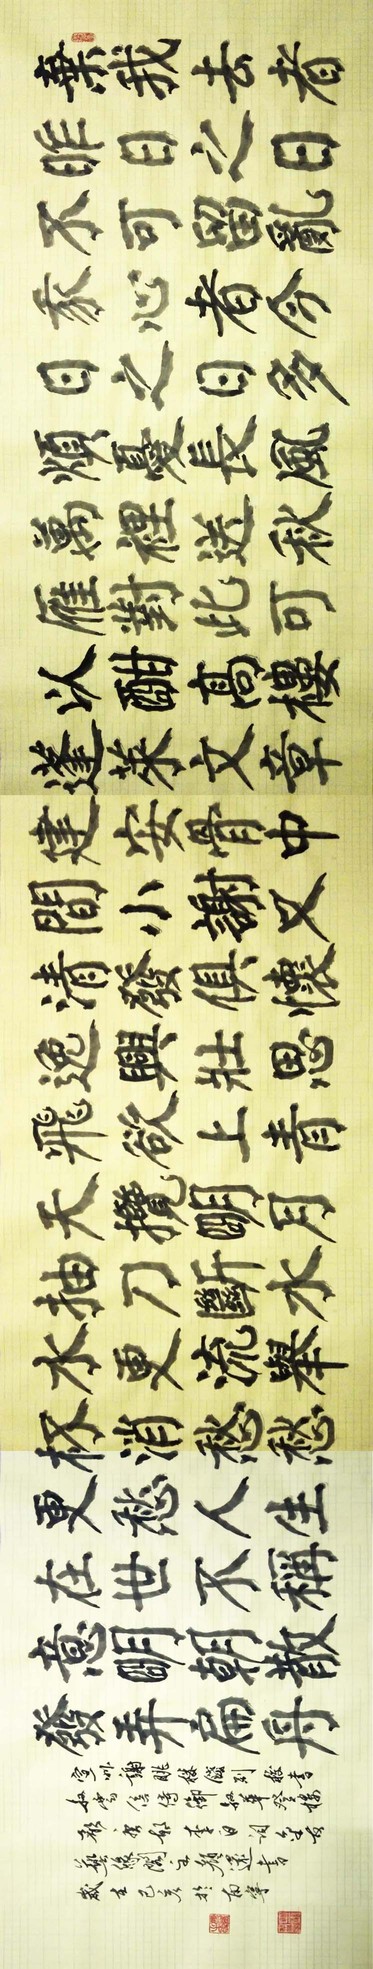 棄我去者
昨日之日
不可留亂
我心者今
日之日多
煩憂長風
萬裡送秋
雁對此可
以酣高樓
蓬萊文章
建安骨中
間小謝又
清發俱懷
逸興壯思
飛欲上青
天攬明月
抽刀斷水
水更流舉
杯消愁愁
更愁人生
在世不稱
意明朝散
發弄扁舟
宣州謝朓樓餞別校書
叔雲陪侍御叔華登樓
歌李白
書
歲在己亥於南寧